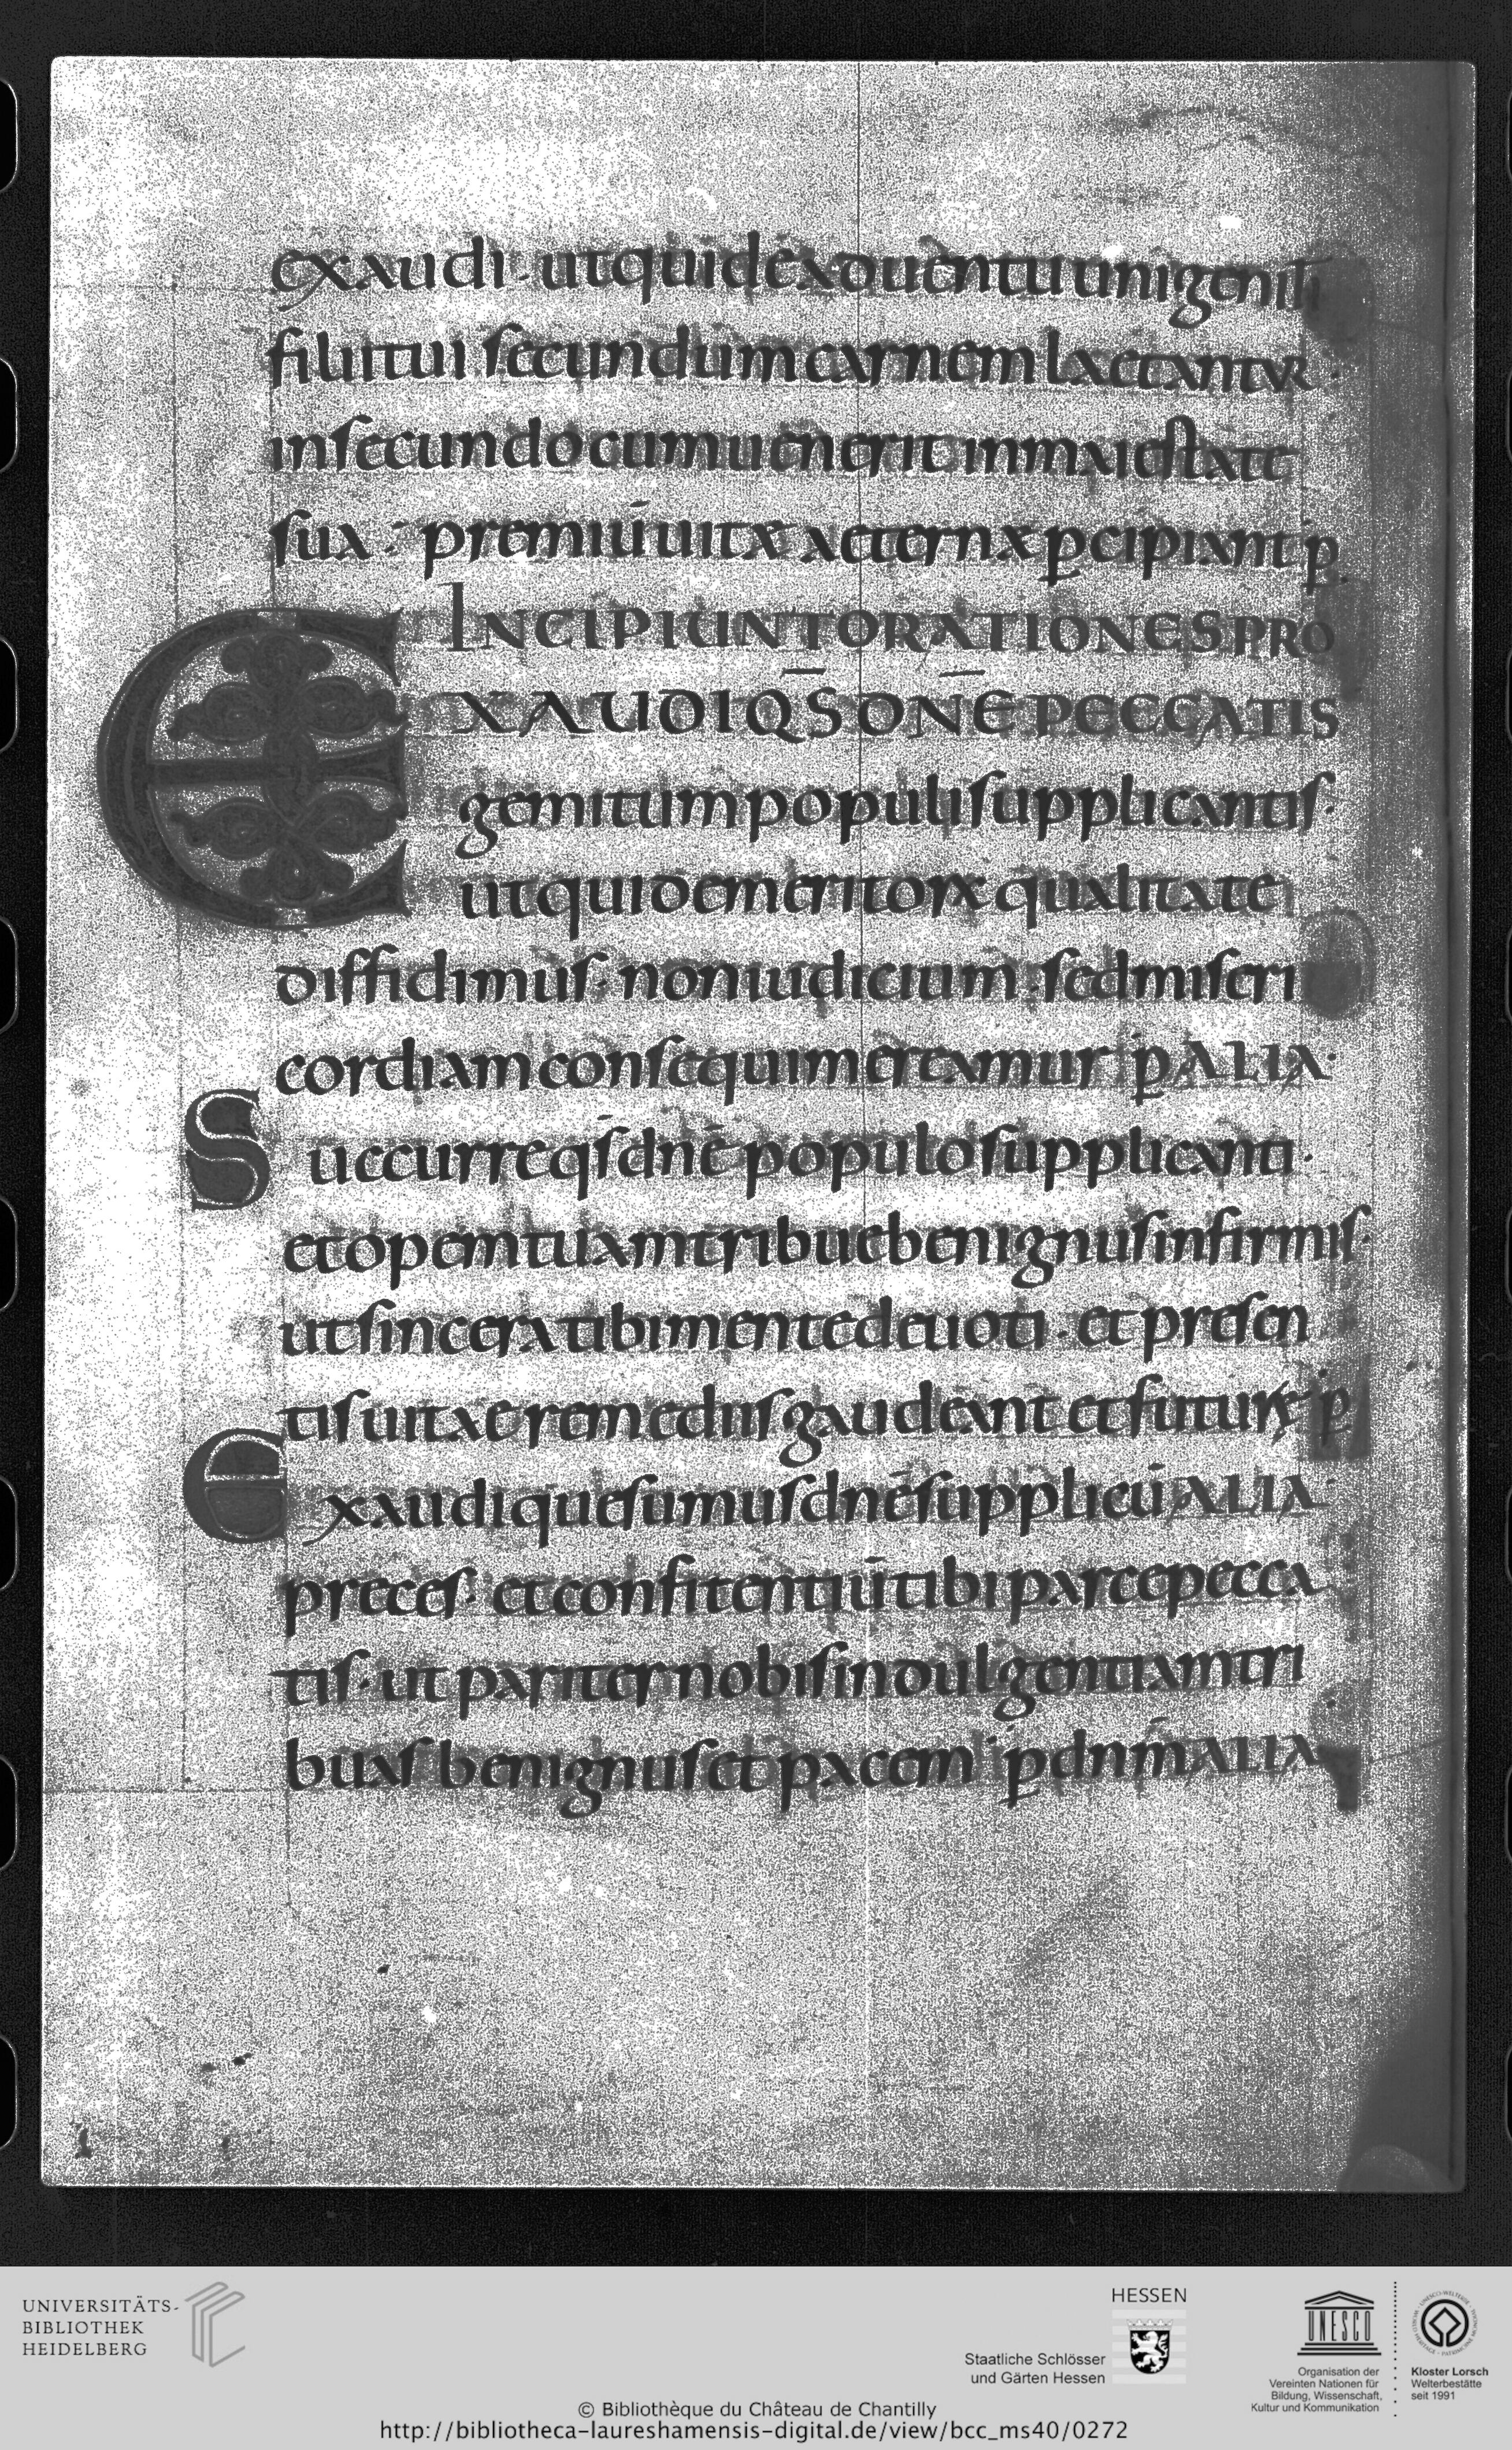 exaudi · ut qui de aduentu unigeniti
filii tui secundum carnem laetantur ·
in secundo cum uenerit in maiestate
sua · premiū uitae aeternae pcipiant p
INCIPIUNT ORATIONES PRO
EXAUDI QS̄ DN̄E PECCATIS
gemitum populi supplicantis ·
ut qui de meritorx qualitate
diffidimus · non iudicium · sed miseri
cordiam consequi mereamur p ALIA ·
Succurre qs̄ dnē populo supplicanti ·
et opem tuam tribue benignus infirmis ·
ut sincera tibi mente deuoti · et presen
tis uitae remediis gaudeant et futurae p
Exaudi quesumus dnē supplicū ALIA
preces · et confitentiū tibi parce pecca
tis · ut pariter nobis indulgentiam tri
buas benignus et pacem p dnm̄ ALIA
UNIVERSITÄTS-
BIBLIOTHEK
HEIDELBERG
HESSEN
Staatliche Schlösser
und Gärten Hessen
UNESCO
Organisation der
Vereinten Nationen für
Bildung, Wissenschaft,
Kultur und Kommunikation
Kloster Lorsch
Welterbestätte
seit 1991
© Bibliothèque du Château de Chantilly
http://bibliotheca-laureshamensis-digital.de/view/bcc_ms40/0272